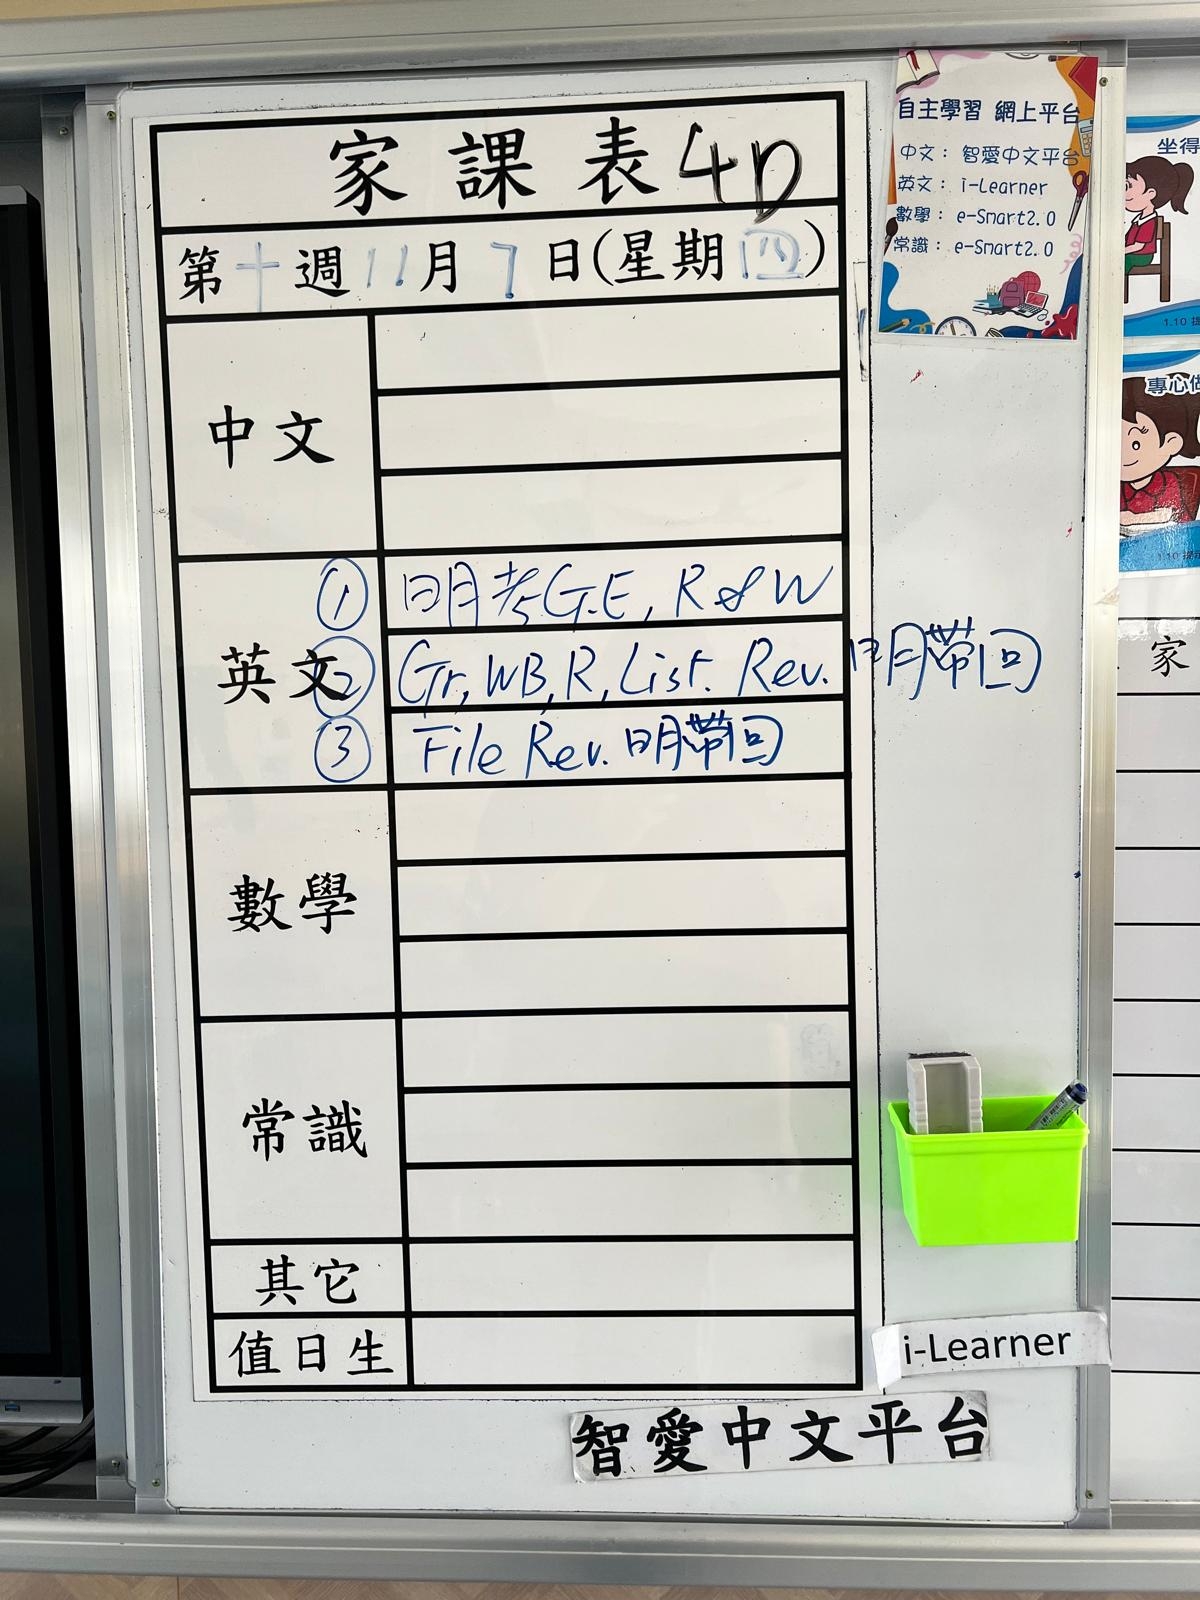 家課表 4D
第十週 11月 7日(星期四)
中文
英文
① 明考G.E, R & W
② Gr, WB, R, List. Rev. 明帶回
③ File Rev. 明帶回
數學
常識
其它
值日生
自主學習 網上平台
中文： 智愛中文平台
英文： i-Learner
數學： e-Smart2.0
常識： e-Smart2.0
坐得
1.10 提
專心做
1.10 提示
家
i-Learner
智愛中文平台